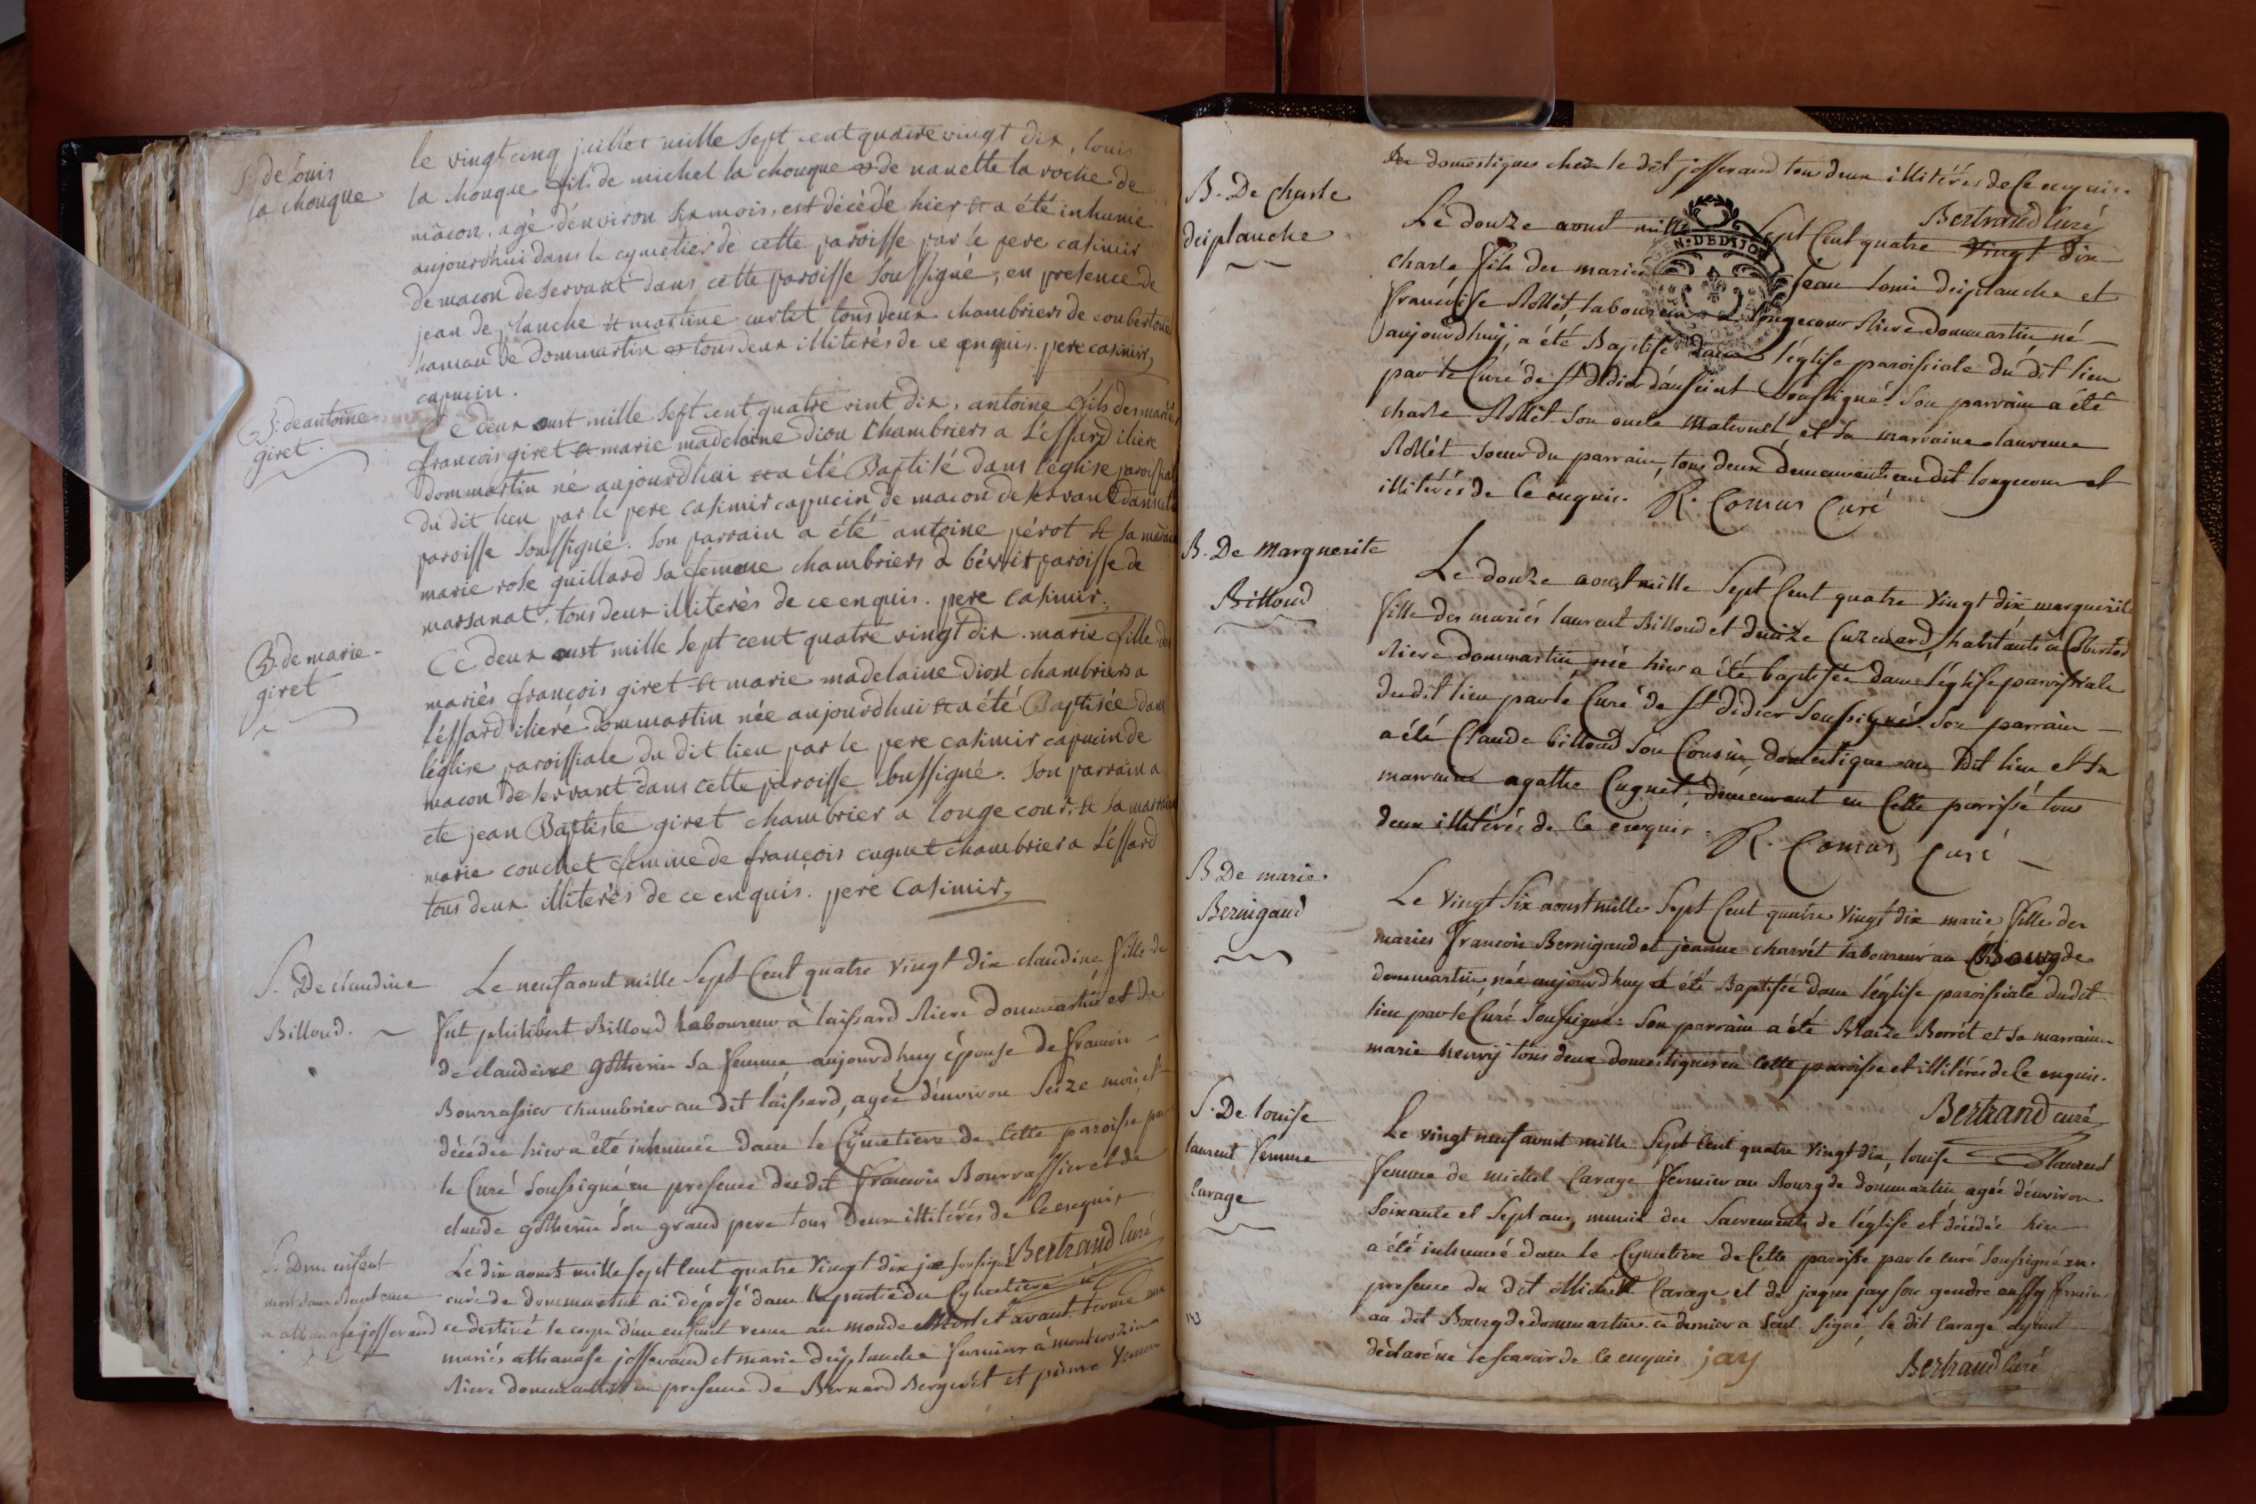 S. de louis
la chouque
le vingt cinq juillet mille sept cent quatre vingt dix, louis
la chouque fils de michel la chouque et de nanette la roche de
mâcon, agé d'environ six mois, est décédé hier et a été inhumé
aujourd'hui dans le cymetier de cette paroisse par le pere casimir
de macon deservant dans cette paroisse soussigné, en presence de
jean de planche et martine curtet tous deux chambriers de
hameau de dommartin et tous deux illiterés de ce enquis. pere casimir,
capucin.
B. de antoine
giret.
Ce deux oust mille sept cent quatre vint dix, antoine fils des mariés
françois giret et marie madelaine diou chambriers a L'essard riere
dommartin né aujourdhui et a été Baptisé dans l'église paroissiale
du dit lieu par le pere casimir capucin de macon deservant dans cette
paroisse soussigné. son parrain a été antoine pérot et sa
marie rose guillard sa femme chambriers a paroisse de
marsanat. tous deux illiterés de ce enquis. pere casimir.
B. de marie
giret
Ce deux oust mille sept cent quatre vingt dix. marie fille des
mariés françois giret et marie madelaine diou chambriers a
l'éssard riere dommartin née aujourdhui et a été Baptisée dans
léglise paroissiale du dit lieu par le pere casimir capucin de
macon deservant dans cette paroisse soussigné. son parrain a
été jean Baptiste giret chambrier a longe cour, et sa marraine
marie couchet femme de françois cugnet chambrier a L'éssard
tous deux illiterés de ce enquis. pere Casimir,
S. De claudine
Billoud.
Le neuf aoust mille Sept Cent quatre vingt dix claudine fille de
fut philibert Billoud Laboureur à laissard Riere dommartin et de
de claudine gotherin sa femme aujourd'huy épouse de françois
Bourrassier chambrier au dit laissard, agée d'environ Seize mois, et
décédée hier a été inhumée dans le Cymetiere de Cette paroisse par
le Curé Soussigné en presence du dit françois Bourrassier et de
claude gotherin Son grand pere tous deux illitérés de Ce enquis
Bertrand Curé
S. D'un enfant
a athanase josserand
Le dix aoust mille sept Cent quatre vingt dix je soussigné
curé de dommartin ai déposé dans la partie du Cymetiere
ce destiné le corps d'un enfant venu au monde mort et avant terme aux
mariés athanase josserand et marie deiplanche fermiers à
Riere dommartin en presence de Bernard Bergeret et pierre
domestiques chez le dit josserand tous deux illitérés de Ce enquis.
Bertrand Curé
B. De Charle
deiplanche
Le douze aoust mille Sept Cent quatre vingt dix
charle fils des mariés jean louis deiplanche et
françoise Rollet laboureur a longecour Riere dommartin né
aujourdhuy, a été Baptisé dans l'église paroissiale du dit lieu
par le Curé de St Didier Soussigné. Son parrain a été
charle Rollet Son oncle Maternel et Sa marraine laurence
Rollét Soeur du parrain, tous deux demeurants au dit longecour et
illitérés de Ce enquis. R. Comas Curé
B. De Marguerite
Billoud
Le douze aoust mille Sept Cent quatre Vingt dix marguerite
fille des mariés laurent Billoud et habitants a
Riere dommartin née hier a été baptisée dans l'église paroissiale
du dit lieu par le Curé de St Didier Soussigné. Son parrain
a été Claude billoud Son Cousin domestique au dit lieu et sa
marraine agathe Cugnet, demeurant en Cette parroisse tous
deux illitérés de Ce enquis. R. Comas Curé
B De marie
Bernigaud
Le vingt Six aoust mille Sept Cent quatre vingt dix marie fille des
mariés françois Bernigaud et jeanne charvét laboureur au Bourg de
dommartin, née aujourd'huy et été Baptisée dans l'église paroissiale dudit
lieu par le Curé Soussigné. Son parrain a été Blaize Borrét et sa marraine
marie henry tous deux domestiques en Cette paroisse et illitérés de Ce enquis.
Bertrand curé
S. De louise
laurent femme
Carage
Le vingt neuf aoust mille Sept Cent quatre vingt dix, louise laurent
femme de michel Carage fermier au Bourg de dommartin agée d'environ
Soixante et Sept ans, munie des Sacrements de l'église et décédée hier
a été inhumée dans le Cymetiere de Cette paroisse par le curé Soussigné en
presence du dit Michel Carage et de jaque jay Son gendre aussy fermier
au dit Bourg de dommartin. ce dernier a Seul Signé, le dit Carage ayant
déclaré ne le scavoir de Ce enquis jay
Bertrand Curé